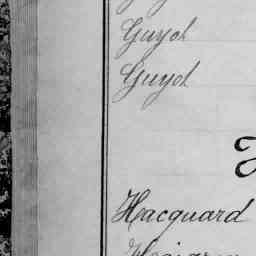 Guyot
Guyot
H
Hacquard